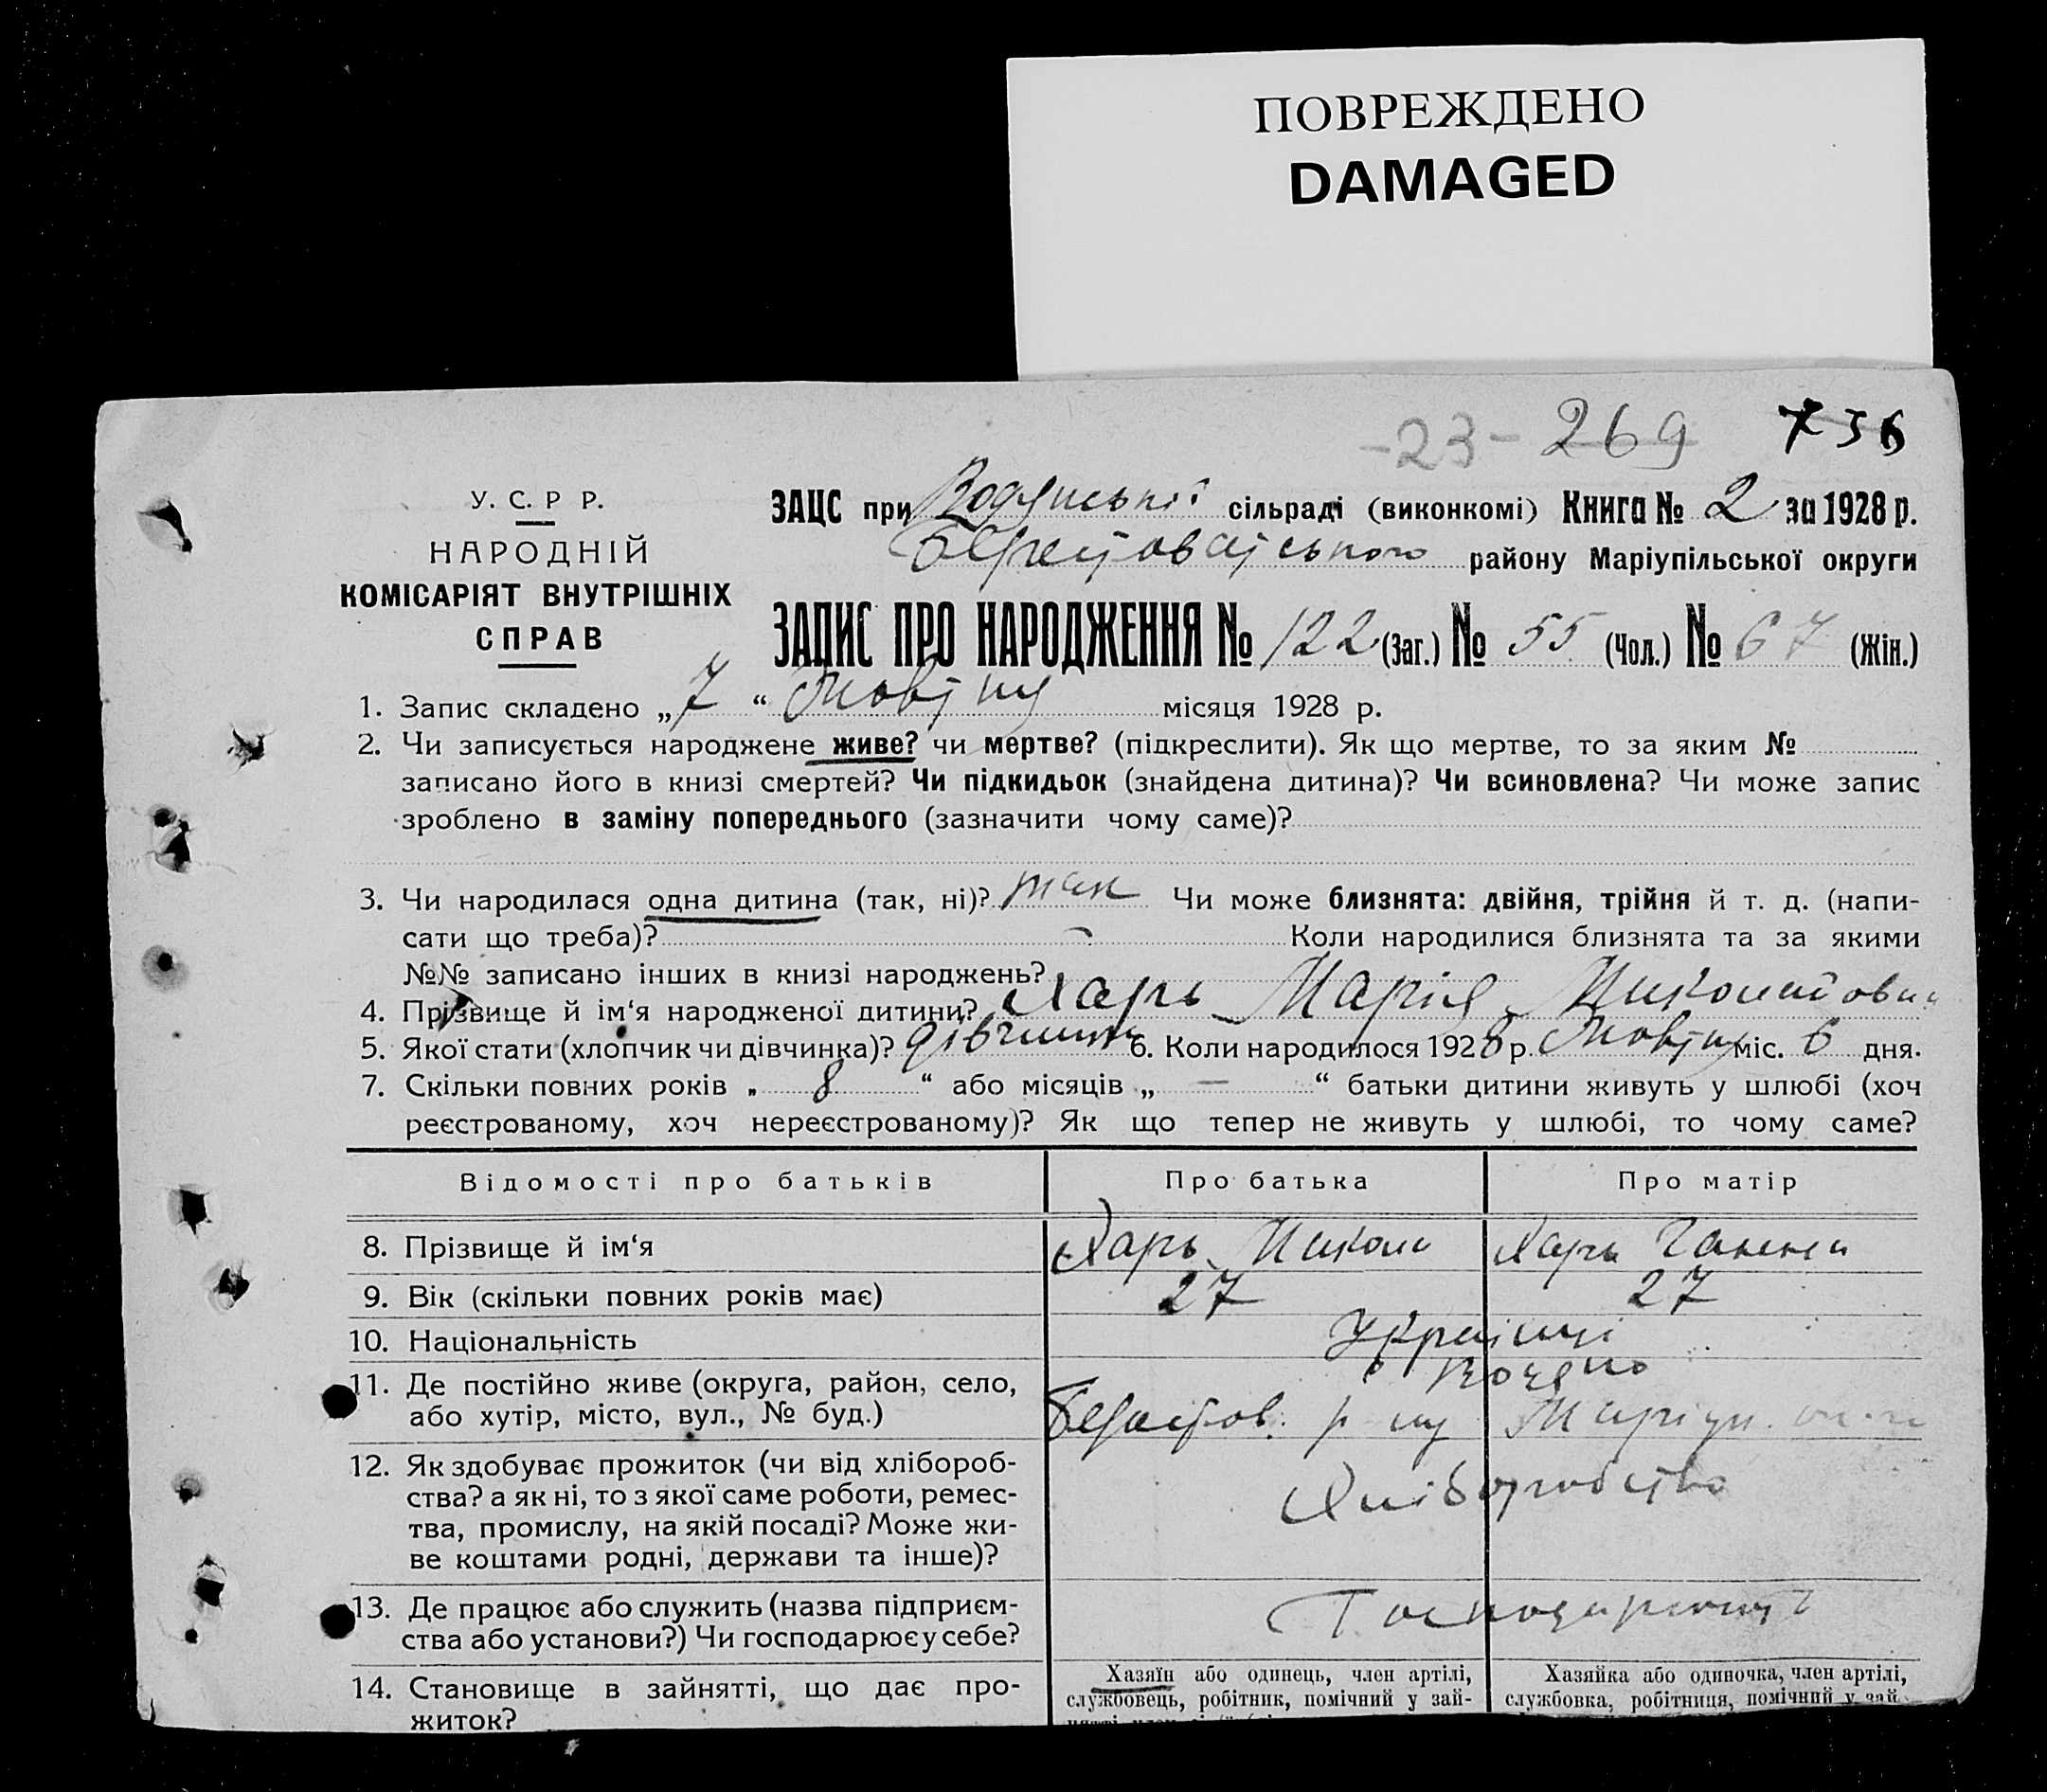 ПОВРЕЖДЕНО
DAMAGED
-23- 269 736
У. С. Р Р.
НАРОДНІЙ
КОМІСАРІЯТ ВНУТРІШНІХ
СПРАВ
ЗАЦС при Водянській сільраді (виконкомі) Книга № 2 за 1928 р.
району Маріупільської округи
ЗАПИС ПРО НАРОДЖЕННЯ № 122 (Заг.) № 55 (Чол.) № 67 (Жін.)
1. Запис складено „ 7 “ Жовтня місяця 1928 р.
2. Чи записується народжене живе? чи мертве? (підкреслити). Як що мертве, то за яким №
записано його в книзі смертей? Чи підкидьок (знайдена дитина)? Чи всиновлена? Чи може запис
зроблено в заміну попереднього (зазначити чому саме)?
3. Чи народилася одна дитина (так, ні)? так Чи може близнята: двійня, трійня й т. д. (напи-
сати що треба)? – Коли народилися близнята та за якими
№№ записано інших в книзі народжень?
4. Прізвище й ім‘я народженої дитини? Харь Марія
5. Якої стати (хлопчик чи дівчинка)? дівчинка 6. Коли народилося 1928 р. Жовтня міс. 6 дня.
7. Скільки повних років „ 8 “ або місяців „ — “ батьки дитини живуть у шлюбі (хоч
реєстрованому, хоч нереєстрованому)? Як що тепер не живуть у шлюбі, то чому саме?
Відомості про батьків Про батька Про матір
8. Прізвище й ім‘я Харь Микола Харь
9. Вік (скільки повних років має) 27 27
10. Національність Українці
11. Де постійно живе (округа, район, село, Водяно
або хутір, місто, вул., № буд.) р-ну Маріуп.
12. Як здобуває прожиток (чи від хлібороб-
ства? а як ні, то з якої саме роботи, ремес- Хліборобство
тва, промислу, на якій посаді? Може жи-
ве коштами родні, держави та інше)?
13. Де працює або служить (назва підприєм-
ства або установи?) Чи господарює у себе?
14. Становище в зайнятті, що дає про-
житок?
Хазяїн або одинець, член артілі,
службовець, робітник, помічний у зай-
Хазяйка або одиночка, член артілі,
службовка, робітниця, помічний у зай-